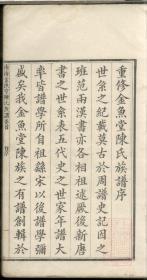 重修金魚堂陳氏族譜序
世系之紀載莫古於周譜史記因之
班范兩漢書亦各相祖述厥後新唐
書之世系表五代史之世家年譜大
率皆譜學所自祖録宋以後譜學彌
盛矣我金魚堂陳族之有譜創輯於